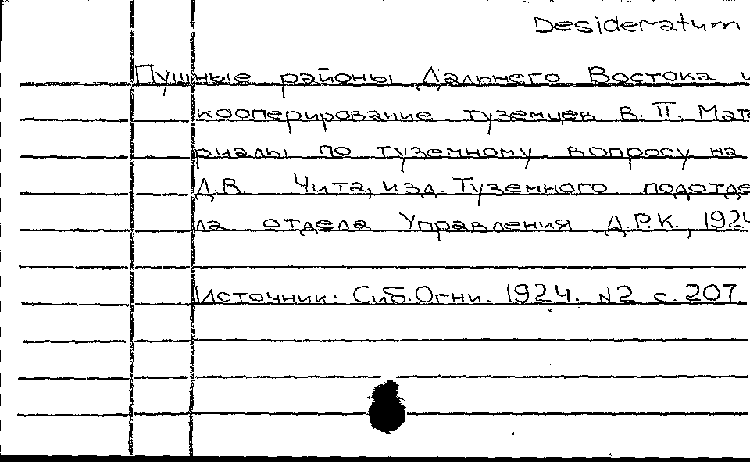 Desideratum
Пушные районы Дальнего Востока и
кооперирование туземцев В. П. Мате
риалы по туземному вопросу на
Д.В. Чита, изд. Туземного подотде
ла отдела Управления Д.Р.К., 1924
Источник: Сиб.Огни. 1924. N2 с. 207